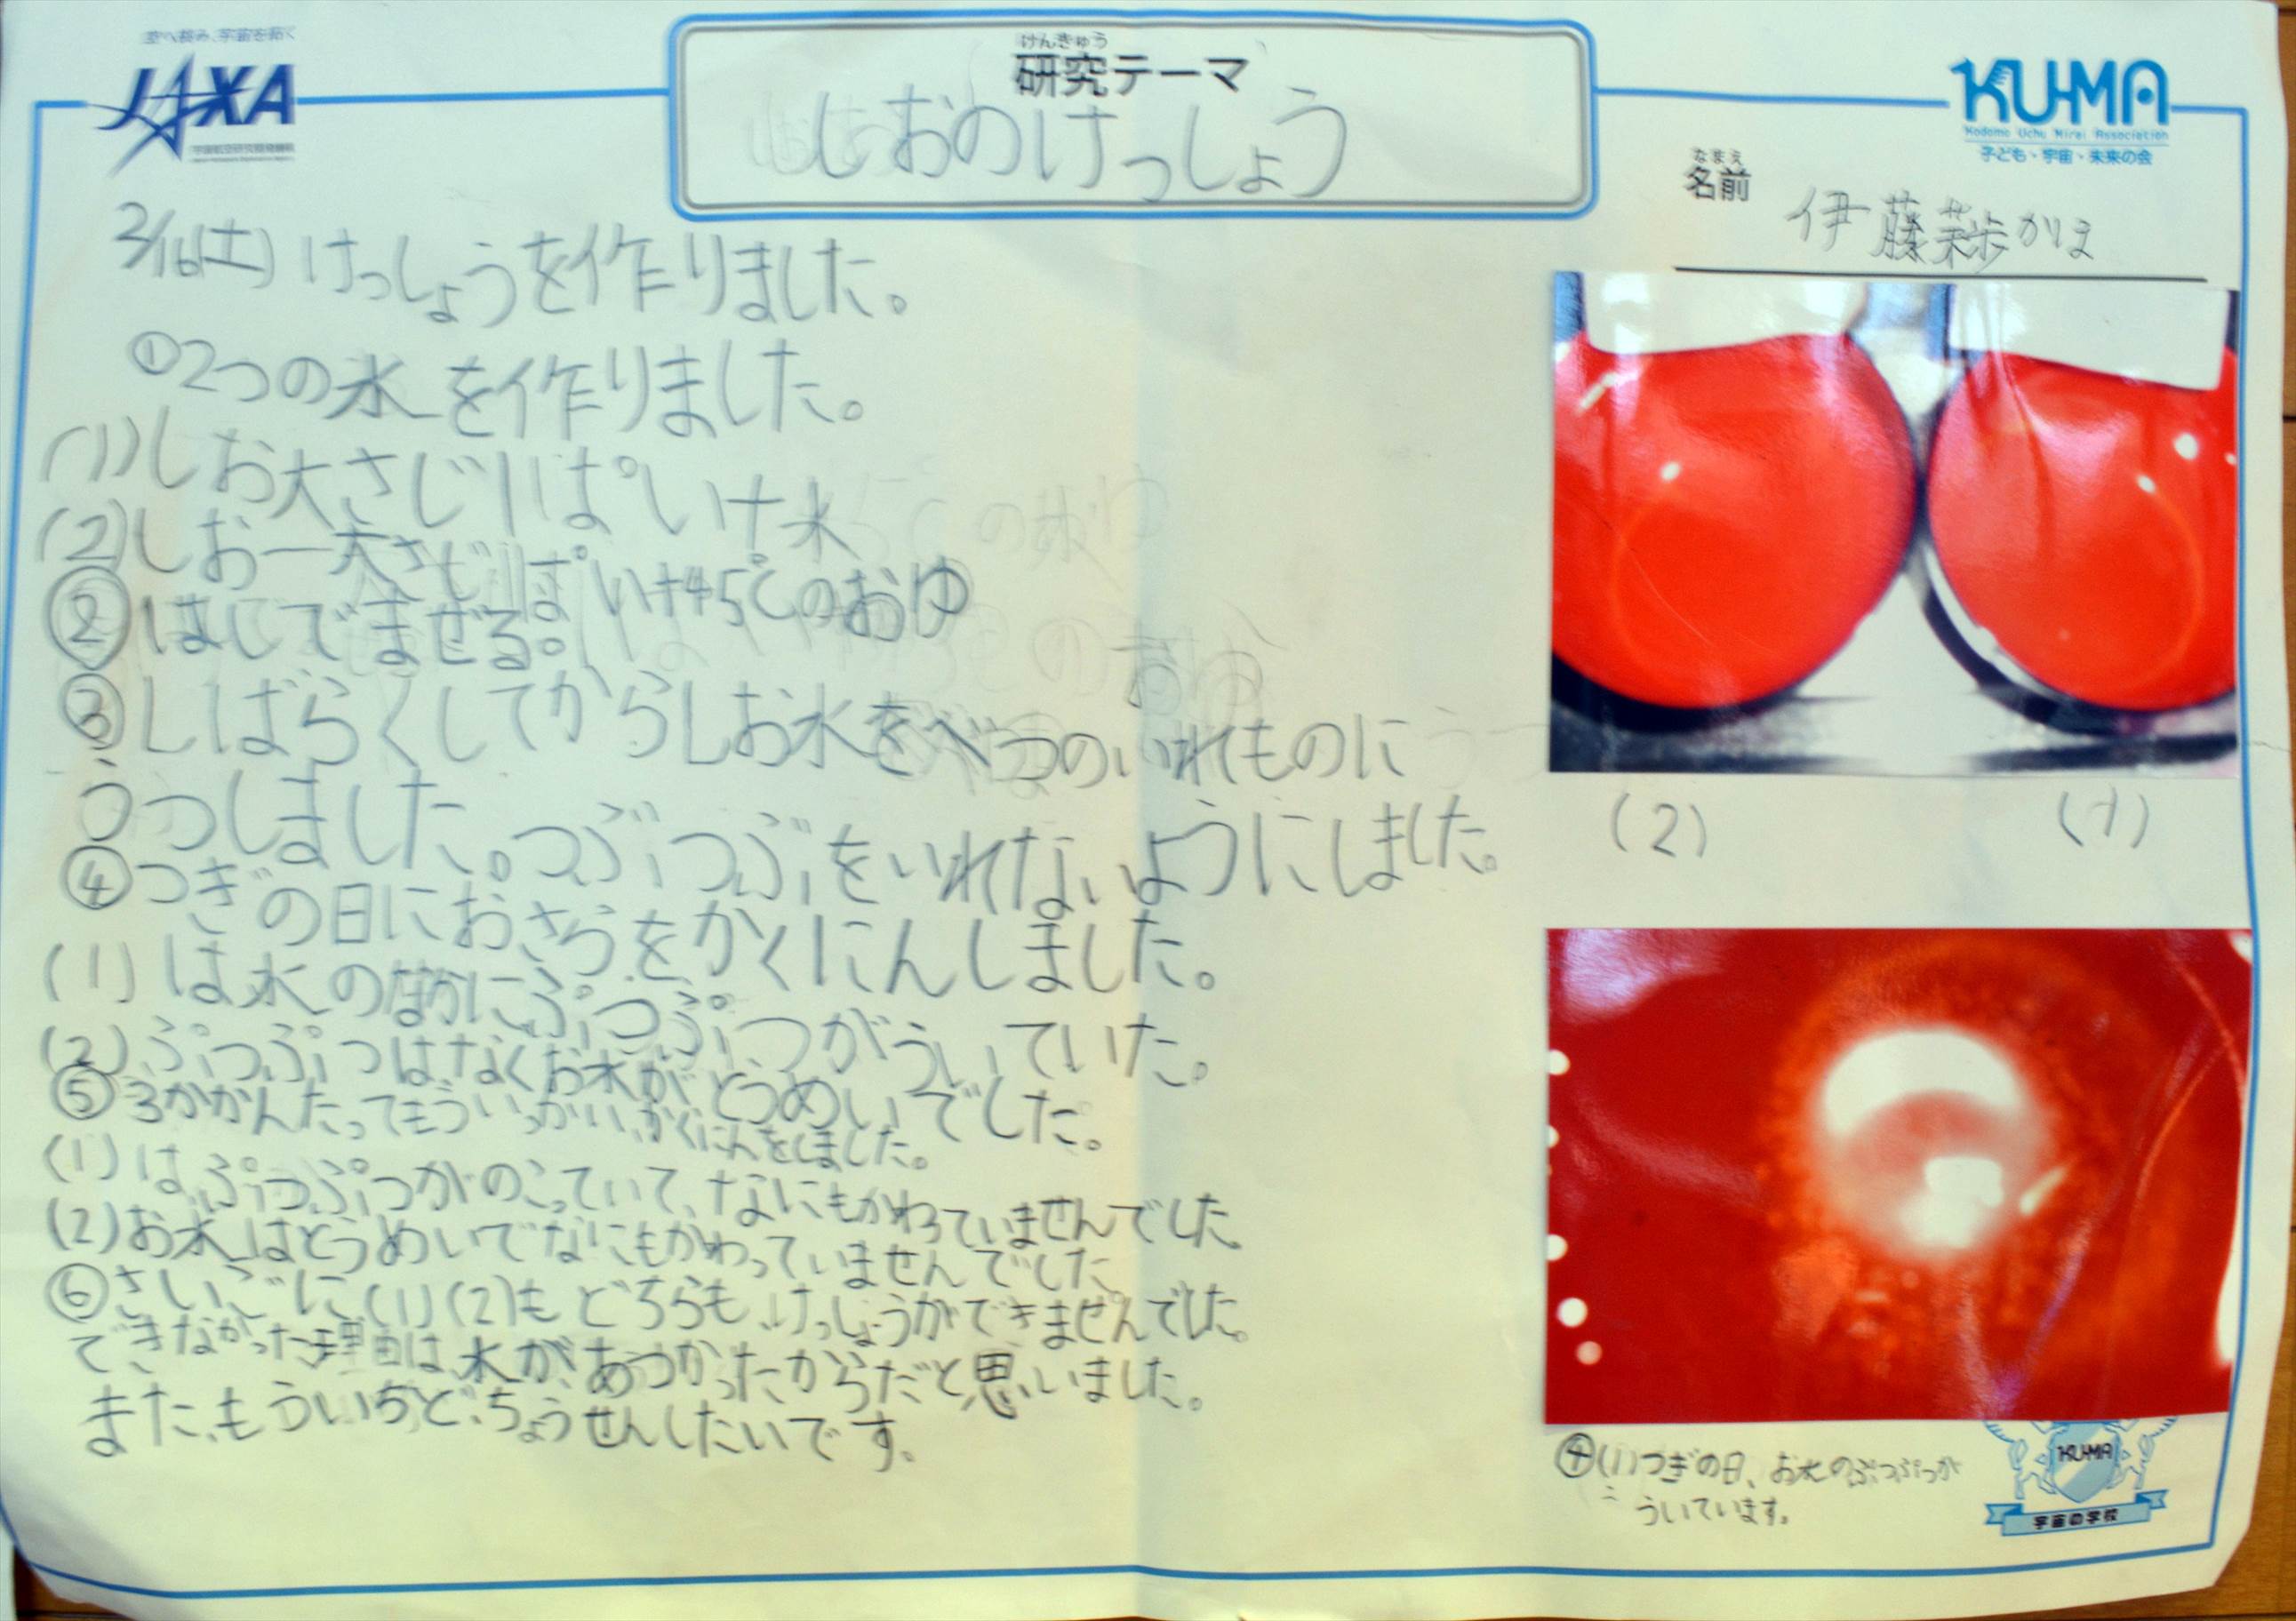 空へ挑み、宇宙を拓く
JAXA
宇宙航空研究開発機構
けんきゅう
研究テーマ
しおのけっしょう
KU-MA
Kodomo Uchu Mirai Association
子ども・宇宙・未来の会
なまえ
名前
伊藤 歩かほ
2/16(土) けっしょうを作りました。
①2つの水を作りました。
(1)しお大さじ1ぱい+水
(2)しお一大さじ1ぱい+45℃のおゆ
②はしでまぜる。
③しばらくしてからしお水をべつのいれものに
うつしました。つぶつぶをいれないようにしました。
④つぎの日におさらをかくにんしました。
(1)は水の中にぷつぷつがういていた。
(2)ぷつぷつはなくお水がとうめいでした。
⑤3かかんたってもういっかい、かくにんをしました。
(1)は、ぷつぷつがのこっていて、なにもかわっていませんでした。
(2)お水はとうめいでなにもかわっていませんでした。
⑥さいごに(1)(2)もどちらも、けっしょうができませんでした。
できなかった理由は、水が、あつかったからだと思いました。
また、もういちど、ちょうせんしたいです。
(2) (1)
④(1)つぎの日、お水のぷつぷつが
ういています。
KU-MA
宇宙の学校